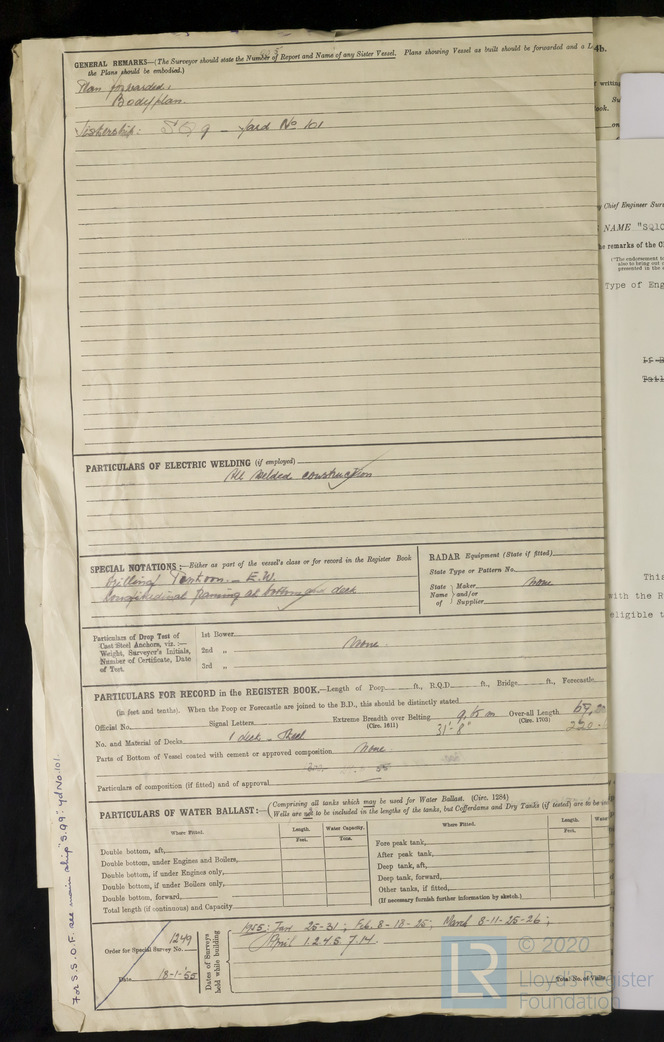 GENERAL REMARKS—(The Surveyor should state the Number of Report and Name of any Sister Vessel. Plans showing Vessel as built should be forwarded and a
the Plans should be embodied.)
Plan forwarded:
Bodyplan.
Sistership: S.Q. 9 - Yard No 101
PARTICULARS OF ELECTRIC WELDING (if employed)
All welded construction
SPECIAL NOTATIONS:—Either as part of the vessel's class or for record in the Register Book
Drilling Pontoon - E.W.
Longitudinal framing at bottom and deck
RADAR Equipment (State if fitted)
State Type or Pattern No.
State Name of Maker and/or Supplier None
Particulars of Drop Test of
Cast Steel Anchors, viz.:—
Weight, Surveyor's Initials,
Number of Certificate, Date
of Test.
1st Bower
2nd „ None
3rd „
PARTICULARS FOR RECORD in the REGISTER BOOK.—Length of Poop ft., R.Q.D. ft., Bridge ft., Forecastle
(in feet and tenths). When the Poop or Forecastle are joined to the B.D., this should be distinctly stated
Official No. Signal Letters Extreme Breadth over Belting (Circ. 1611) 9,65 m Over-all Length (Circ. 1703)
31'-8" 220
No. and Material of Decks 1 deck - Steel
Parts of Bottom of Vessel coated with cement or approved composition None
Particulars of composition (if fitted) and of approval
PARTICULARS OF WATER BALLAST:—(Comprising all tanks which may be used for Water Ballast. (Circ. 1284)
Wells are not to be included in the lengths of the tanks, but Cofferdams and Dry Tanks (if tested) are to be
Where Fitted. Length. Water Capacity. Where Fitted. Length. Water
Feet. Tons. Feet.
Double bottom, aft, Fore peak tank,
Double bottom, under Engines and Boilers, After peak tank,
Double bottom, if under Engines only, Deep tank, aft,
Double bottom, if under Boilers only, Deep tank, forward,
Double bottom, forward, Other tanks, if fitted,
Total length (if continuous) and Capacity (If necessary furnish further information by sketch.)
Order for Special Survey No. 1249
Date 18-1-55
Dates of Surveys
held while building
1955: Jan 25-31; Feb. 8-18-25; March 8-11-25-26;
April 1.2.4.5.7.14.
Total No. of Visits
For S.S.O.F. see main ship "S.Q9" yd No. 101.
4b.
Chief Engineer
NAME "SQ10
the remarks of the
("The endorsement
also to bring out
presented in the
Type of Eng
This
with the R
eligible t
LR
© 2020
Lloyd's Register
Foundation